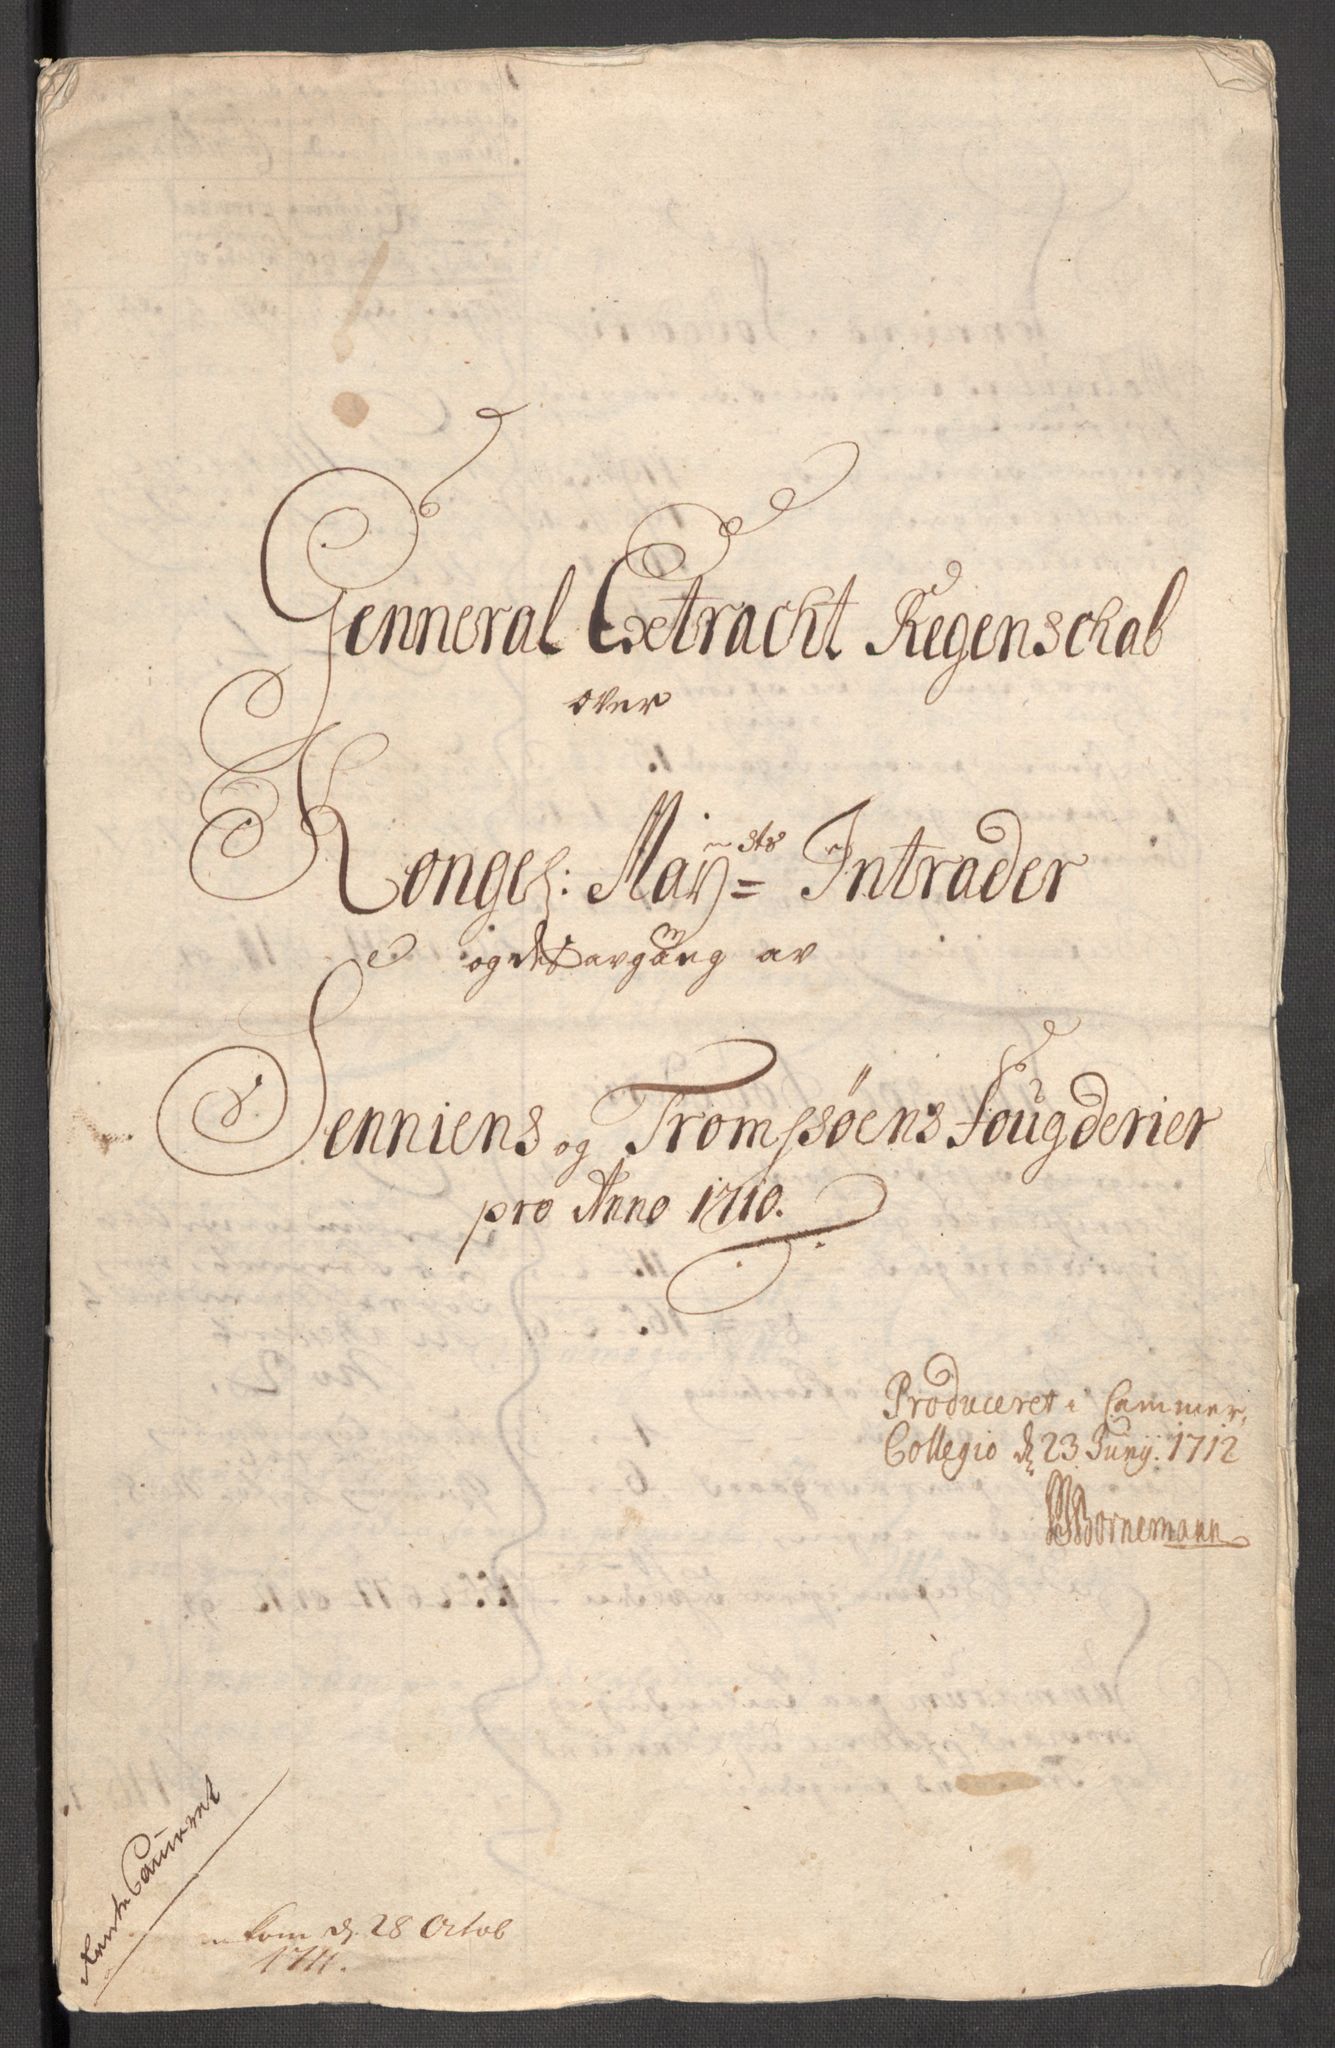 Genneral Extracht Regenschab
over
Kongel: May=sts Intrader
og des avgang av
Senniens og Tromsøens Fougderier
pro Anno 1710.
Produceret i Cammer,
Collegio d. 23 Junij. 1712
Bornemann
Rente Cammeret
kom d. 28 Octob
1711.